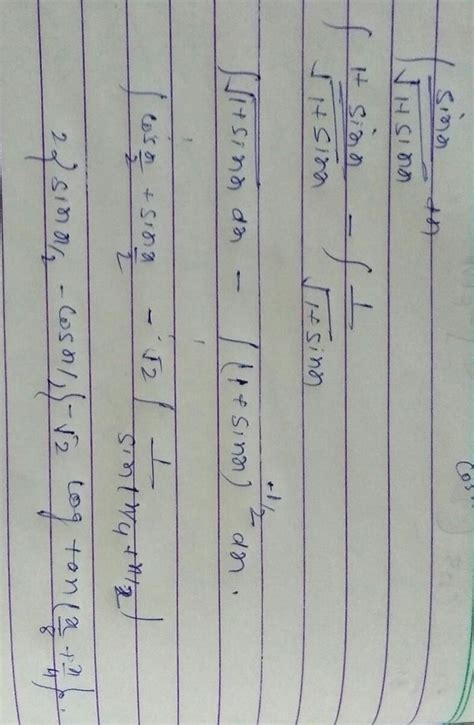 ∫ sinx/√(1+sinx) dx
∫ (1+sinx)/√(1+sinx) − ∫ 1/√(1+sinx)
∫√(1+sinx) dx − ∫(1+sinx)^(-1/2) dx.
∫ cos x/2 + sin x/2 − √2 ∫ 1/sin(π/4+x/2)
2{sin x/2 − cos x/2} − √2 log tan(π/8 + x/4).
cos